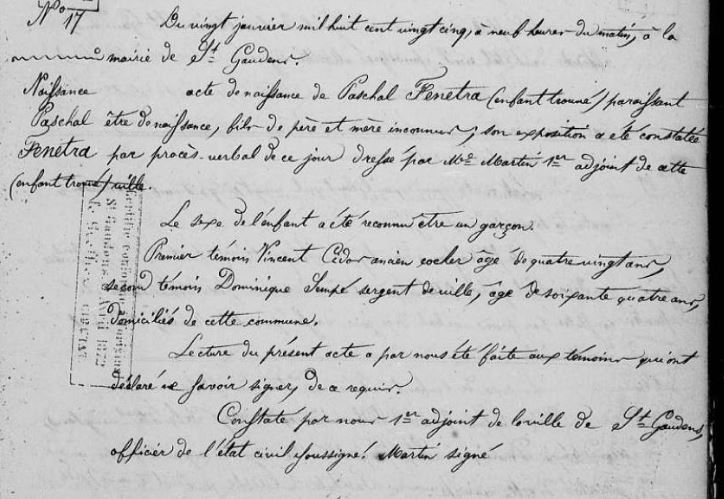 No 17
Du vingt janvier mil huit cent vingt cinq, à neuf heures du matin, à la
mairie de St Gaudens.
Naissance
Paschal
Fenetra
(enfant trouvé)
acte de naissance de Paschal Fenetra (enfant trouvé) paraissant
être de naissance, fils de père et mère inconnus; son exposition a été constatée
par procès-verbal de ce jour dressé par Mr Martin 1er adjoint de cette
ville.
Le sexe de l'enfant a été reconnu être un garçon.
Premier témoin Vincent ancien cocher âgé de quatre vingt ans,
second témoin Dominique Sempé sergent de ville, âgé de soixante quatre ans,
domiciliés de cette commune.
Lecture du présent acte a par nous été faite aux témoins qui ont
déclaré ne savoir signer, de ce requis.
Constaté par nous 1er adjoint de la ville de St Gaudens,
officier de l'état civil soussigné. Martin signé
Certifié conforme
St Gaudens, Avril 1872
Le Greffier